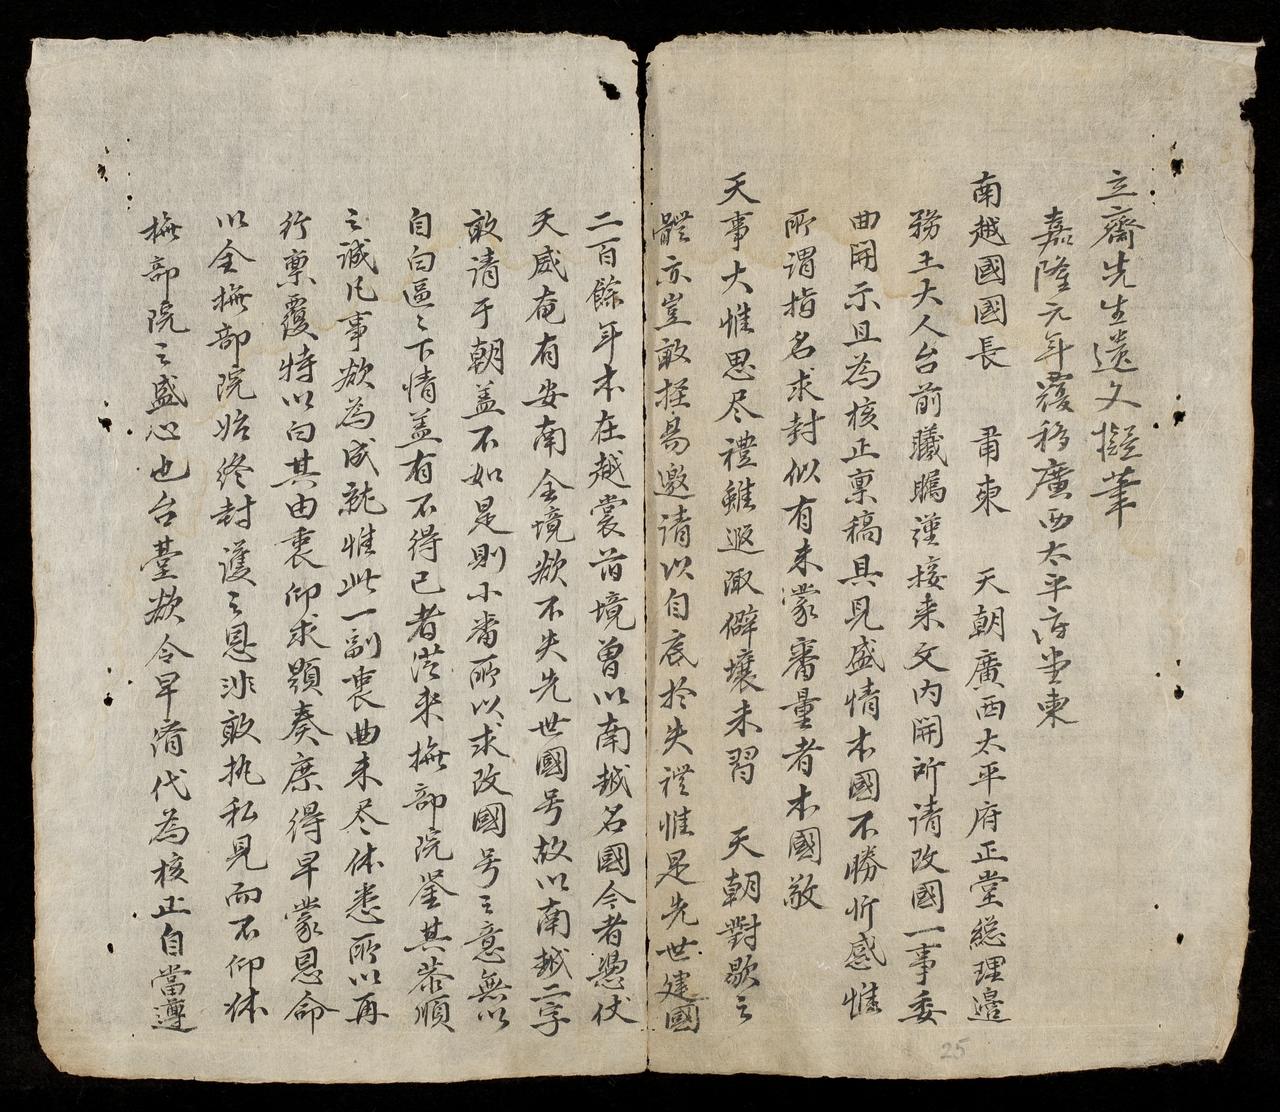 立齋先生遺文擬筆
嘉隆元年覆移廣西太平府堂柬
南越國國長 肅柬 天朝廣西太平府正堂總理邊
務王大人台前曦矚謹接来文內開所请改國一事委
曲開示且為核正稟稿具見盛情本國不勝忻感惟
所謂指名求封似有未蒙審量者本國敬
天事大惟思尽禮雖遐陬僻壤未習 天朝對歇之
體亦豈敢挃易邀请以自底於失礼惟是先世建國
二百餘年本在越裳旧境曾以南越名國今者憑仗
天威奄有安南全境欲不失先世國号故以南越二字
敢请于朝盖不如是則小番所以求改國号之意無以
自白區々下情盖有不得已者從来撫部院鉴其恭順
之誠凡事欲為成就惟此一副衷曲未尽体悉所以再
行稟覆特以白其由衷仰求題奏庶得早蒙恩命
以全撫部院始終封護之恩非敢执私見而不仰体
撫部院之盛心也台臺欲令早清代為核正自當遵
25